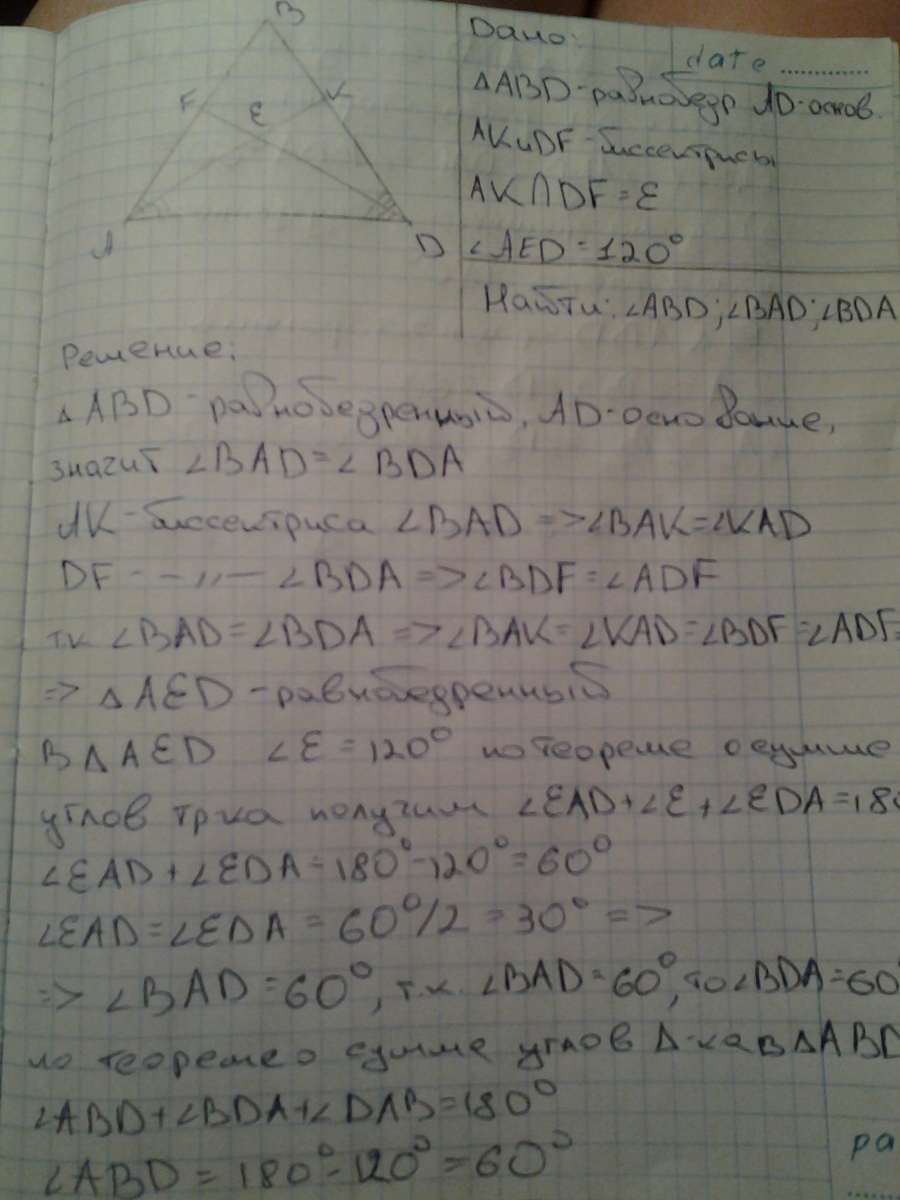 B
F
E
K
A
D
Дано:
date ..............
△ABD-равнобедр AD-основ.
AKиDF-биссектрисы
AK∩DF=E
∠AED=120°
Найти: ∠ABD;∠BAD;∠BDA
Решение:
△ABD-равнобедренный, AD-основание,
значит ∠BAD=∠BDA
AK-биссектриса ∠BAD =>∠BAK=∠KAD
DF - -〃— ∠BDA =>∠BDF=∠ADF
тк ∠BAD=∠BDA =>∠BAK=∠KAD=∠BDF=∠ADF=
=> △AED-равнобедренный
В△AED ∠E=120° по теореме о сумме
углов тр-ка получим ∠EAD+∠E+∠EDA=180
∠EAD+∠EDA=180°-120°=60°
∠EAD=∠EDA=60°/2=30° =>
=> ∠BAD=60°, т.к. ∠BAD=60°, то ∠BDA=60°
по теореме о сумме углов △-ка в △ABD
∠ABD+∠BDA+∠DAB=180°
∠ABD=180°-120°=60°
ра